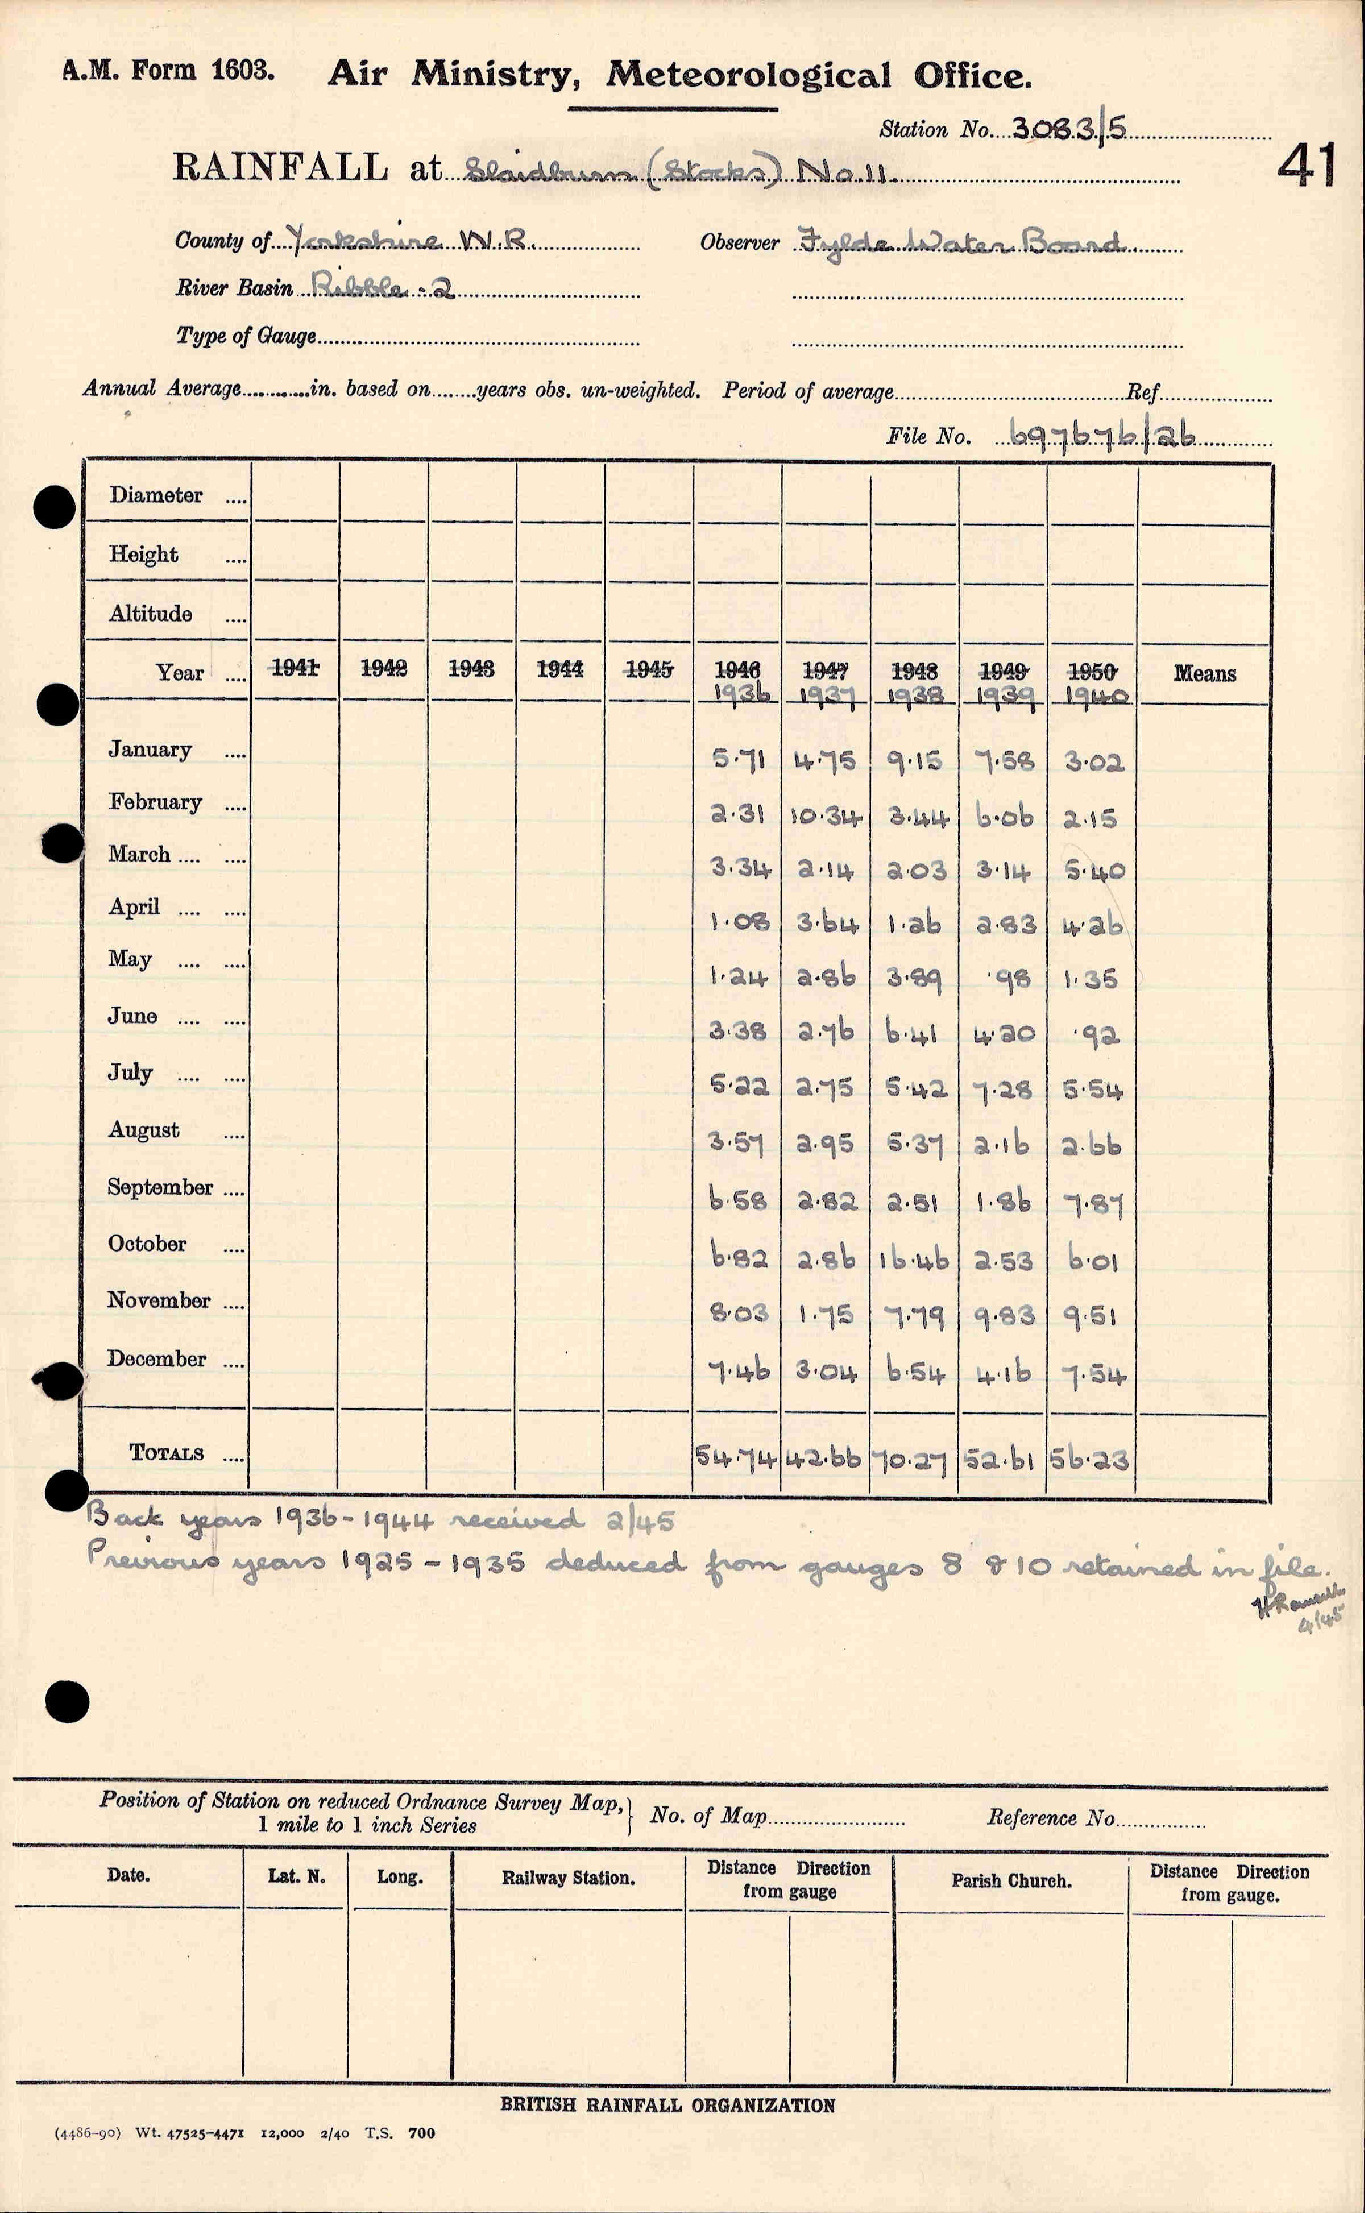 A.M. Form 1603. Air Ministry, Meteorological Office.
Station No. 3083/5
41
RAINFALL at Slaidburn (Stocks) No.11.
County of Yorkshire W.R. Observer Fylde Water Board.
River Basin Ribble - 2
Type of Gauge
Annual Average in. based on years obs. un-weighted. Period of average Ref.
File No. 697676/26
Diameter ....
Height ....
Altitude ....
Year .... 1941 1942 1943 1944 1945 1946 1947 1948 1949 1950 Means
1936 1937 1938 1939 1940
January .... 5.71 4.75 9.15 7.58 3.02
February .... 2.31 10.34 3.44 6.06 2.15
March .... .... 3.34 2.14 2.03 3.14 5.40
April .... .... 1.08 3.64 1.26 2.83 4.26
May .... .... 1.24 2.86 3.89 .98 1.35
June .... .... 3.38 2.76 6.41 4.20 .92
July .... .... 5.22 2.75 5.42 7.28 5.54
August .... 3.57 2.95 5.37 2.16 2.66
September .... 6.58 2.82 2.51 1.86 7.87
October .... 6.82 2.86 16.46 2.53 6.01
November .... 8.03 1.75 7.79 9.83 9.51
December .... 7.46 3.04 6.54 4.16 7.54
TOTALS .... 54.74 42.66 70.27 52.61 56.23
Back years 1936-1944 received 2/45
Previous years 1925-1935 deduced from gauges 8 & 10 retained in file.
4/45
Position of Station on reduced Ordnance Survey Map,} No. of Map Reference No.
1 mile to 1 inch Series
Date. Lat. N. Long. Railway Station. Distance Direction from gauge Parish Church. Distance Direction from gauge.
BRITISH RAINFALL ORGANIZATION
(4486-90) Wt. 47525-4471 12,000 2/40 T.S. 700